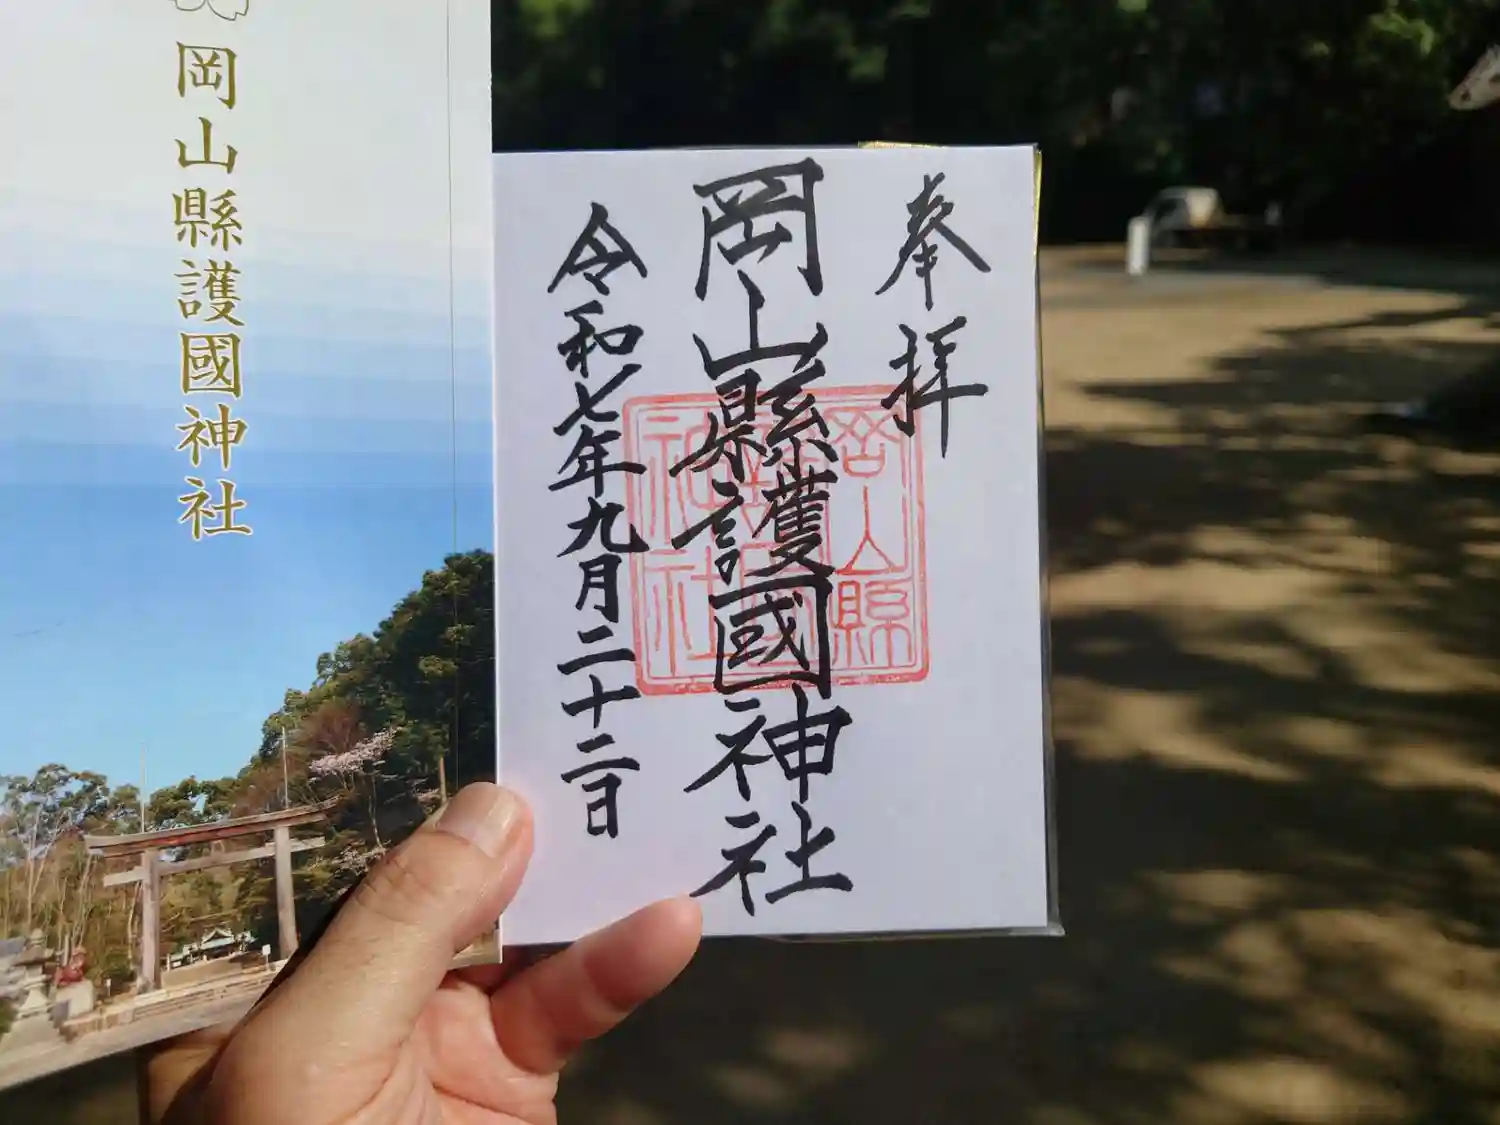 岡山縣護國神社
奉拝
岡山縣護國神社
令和七年九月二十二日
岡山縣
護國
神社